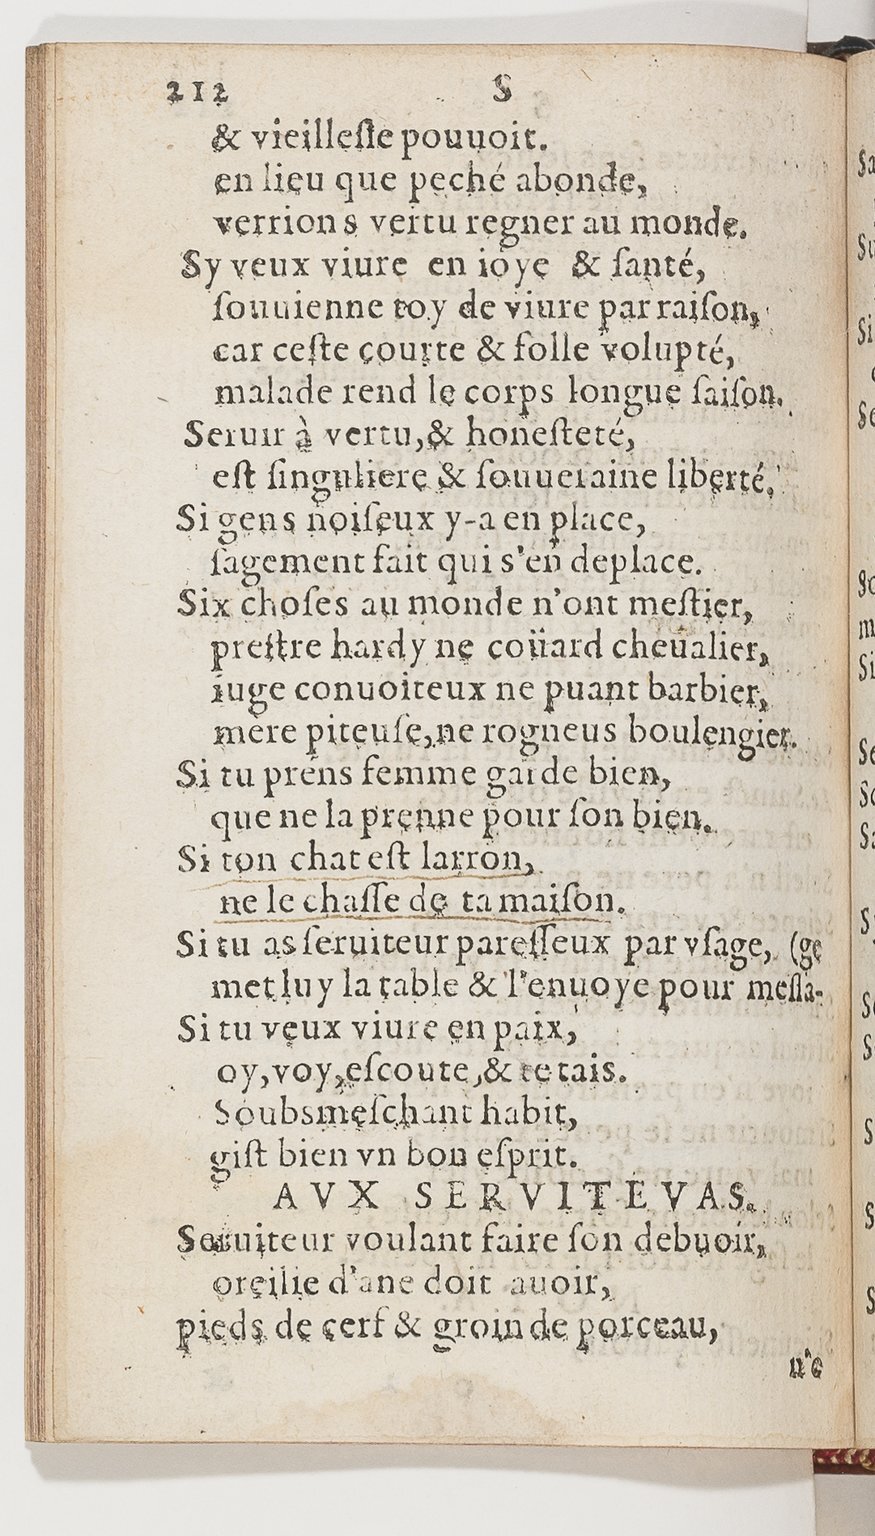 212 S
& vieilleſſe pouuoit.
en lieu que peché abonde,
verrions vertu regner au monde.
Sy veux viure en ioye & ſanté,
ſouuienne toy de viure par raiſon,
car ceſte courte & folle volupté,
malade rend le corps longue ſaiſon.
Seruir à vertu,& honeſteté,
eſt ſinguliere & ſouueraine liberté,
Si gens noiſeux y-a en place,
ſagement fait qui s'en deplace.
Six choſes au monde n'ont meſtier,
preſtre hardy ne coüard cheualier,
iuge conuoiteux ne puant barbier,
mere piteuſe,ne rogneus boulengier.
Si tu prens femme garde bien,
que ne la prenne pour ſon bien.
Si ton chat eſt larron,
ne le chaſſe de ta maiſon.
Si tu as ſeruiteur pareſſeux par vſage, (ge
met luy la table & l'enuoye pour meſſa-
Si tu veux viure en paix,
oy,voy,eſcoute,& te tais.
Soubs meſchant habit,
giſt bien vn bon eſprit.
AVX SERVITEVAS.
Seruiteur voulant faire ſon debuoir,
oreilie d'ane doit auoir,
pieds de cerf & groin de porceau,
n'e